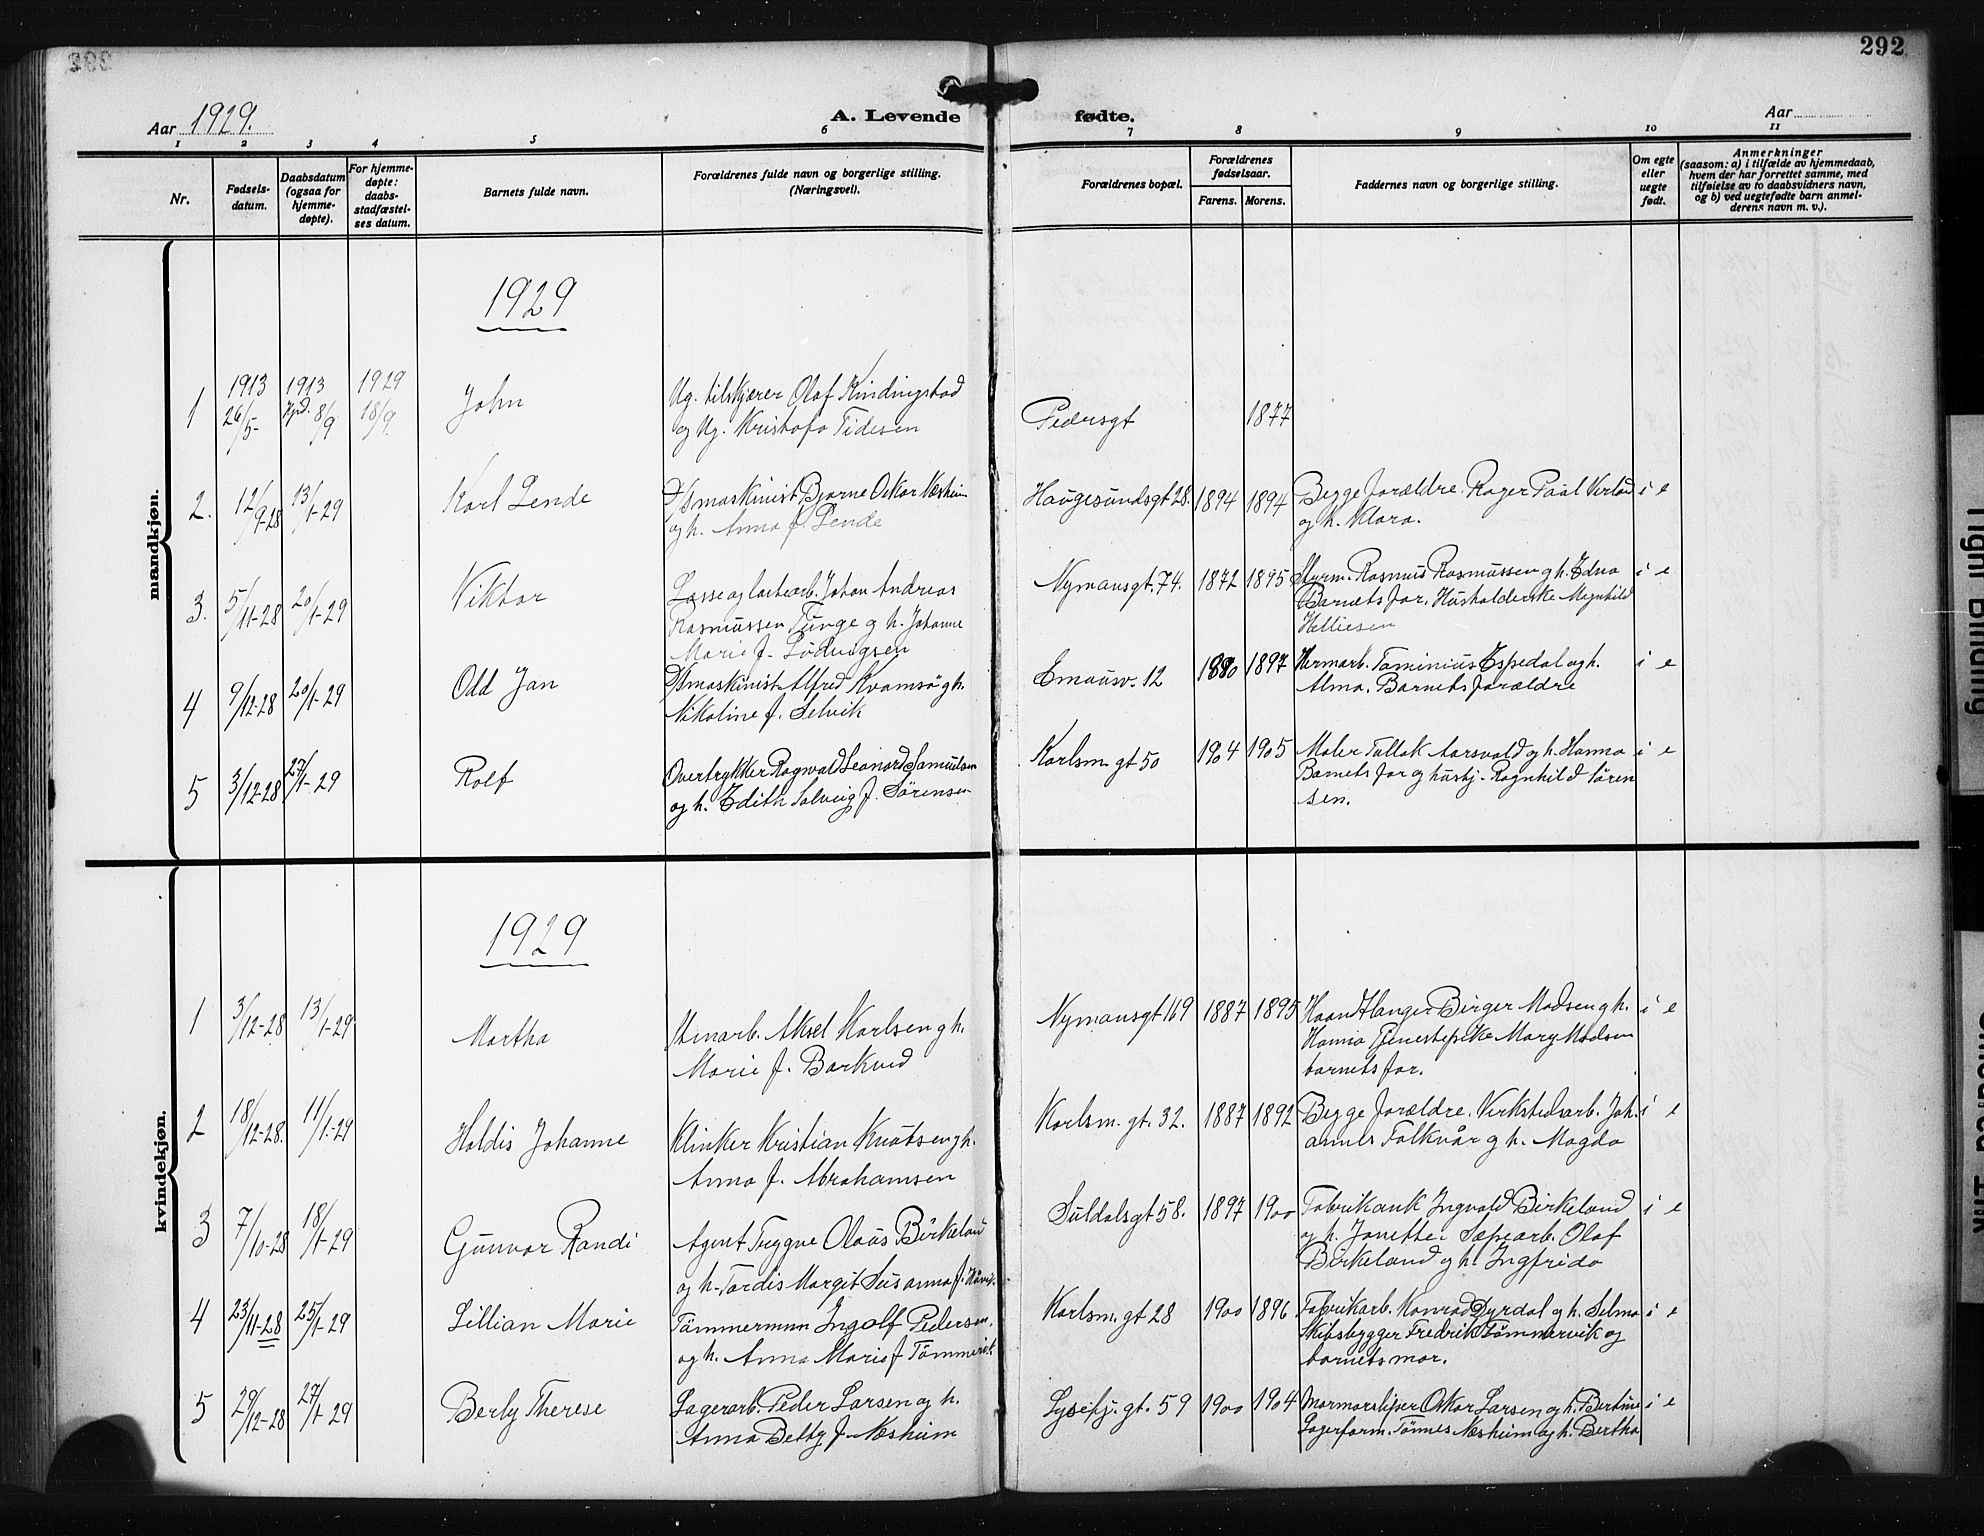 292
Aar 1929.
A. Levende fødte.
Aar
1 2 3 4 5 6 7 8 9 10 11
Nr.
Fødsels-
datum.
Daabsdatum
(ogsaa for
hjemme-
døpte).
For hjemme-
døpte:
daabs-
stadfæstel-
ses datum.
Barnets fulde navn.
Forældrenes fulde navn og borgerlige stilling.
(Næringsvei).
Forældrenes bopæl.
Forældrenes
fødselsaar.
Farens. Morens.
Faddernes navn og borgerlige stilling.
Om egte
eller
uegte
født.
Anmerkninger
(saasom: a) i tilfælde av hjemmedaab,
hvem der har forrettet samme, med
tilføielse av to daabsvidners navn,
og b) ved uegtefødte barn anmel-
derens navn m. v.).
mandkjøn.
1929
1 1913 26/5- 1913 Hjd. 8/9 1929 18/9. John
Ug. tilskjærer Olaf Kindingstad
og Ug. Kristofa Tidesen
Pedersgt 1877
2. 12/9-28 13/1-29 Karl Lende
D/smaskinist Bjarne Oskar Næsheim
og h. Anna f. Lende
Haugesundsgt 28. 1894 1894
Begge forældre. Roger Paal
og h. Klara.
i e
3. 5/11-28 20/1-29 Viktor
Losse og lastearb. Johan Andreas
Rasmussen Tunge og h. Johanne
Marie f. Ludvigsen
Nymansgt. 74. 1872 1895
Styrm. Rasmus Rasmussen og h. Edna
Barnets far. Husholderske Magnhild
Helliesen
i e
4 9/12-28 20/1-29 Odd Jan
D/smaskinist Alfred Kvamsø og h.
Nikoline f. Selvik
Emausv. 12 1880 1897
Hermarb. Tominius Espedal og h.
Alma. Barnets forældre
i e
5 3/12-28 27/1-29 Rolf
Overtrykker Ragnvald Leonard Samuelsen
og h. Edith Solveig f. Sørensen
Karlsm. gt 50 1904 1905
Maler Tallak Aarsvold og h. Hanna
Barnets far og husbj. Ragnhild Søren
sen.
i e
kvindekjøn.
1929
1 3/12-28 13/1-29 Martha
Stenarb. Aksel Karlsen og h.
Marie f. Barkved
Nymansgt 169 1887 1895
Haandlanger Birger Madsen og h.
Hanna Tjenestepike Mary Madsen
barnets far.
i e
2 18/12-28. 11/1-29 Haldis Johanne
Klinker Kristian Knutsen og h.
Anna f. Abrahamsen
Karlsm. gt. 32. 1887 1892
Begge forældre. Verkstedsarb. Joh.
annes Falkvår og h. Magda
i e
3 7/10-28 18/1-29 Gunvor Randi
Agent Tryggve Olaus Birkeland
og h. Tordis Margit Susanna f.
Suldalsgt 58. 1897 1900
Fabrikank Ingvald Birkeland
og h. Janette. Sæpearb. Olaf
Birkeland og h. Ingfrida
i e
4 23/11-28 25/1-29 Lillian Marie
Tømmermann Ingolf Pedersen.
og h. Anna Marie f. Tømmervik.
Karlsm. gt 28 1900 1896
Fabrikarb. Konrad Dyrdal og h. Selma
Skibsbygger Fredrik Tømmervik og
barnets mor.
i e
5 29/12-28 27/1-29 Berly Therese
Lagerarb. Peder Larsen og h.
Anna Betty f. Næsheim
Lysefj. gt. 59 1900 1904
Marmorsliper Oskar Larsen og h. Bertine
Lagerform. Tønnes Næsheim og h. Bertha
i e